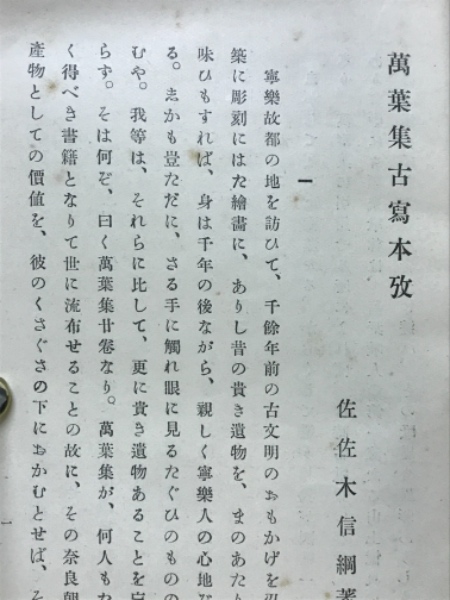 萬葉集古寫本攷
佐佐木信綱著
一
寧樂故都の地を訪ひて、千餘年前の古文明のおもかげを
築に彫刻にはた繪畫に、ありし昔の貴き遺物を、まのあたり
味ひもすれば、身は千年の後ながら、親しく寧樂人の心地
る。志かも豈ただに、さる手に觸れ眼に見るたぐひのものの
むや。我等は、それらに比して、更に貴き遺物あることを
らず。そは何ぞ、曰く萬葉集廿卷なり。萬葉集が、何人もた
く得べき書籍となりて世に流布せることの故に、その奈良朝
產物としての價値を、彼のくさぐさの下におかむとせば、そ
一